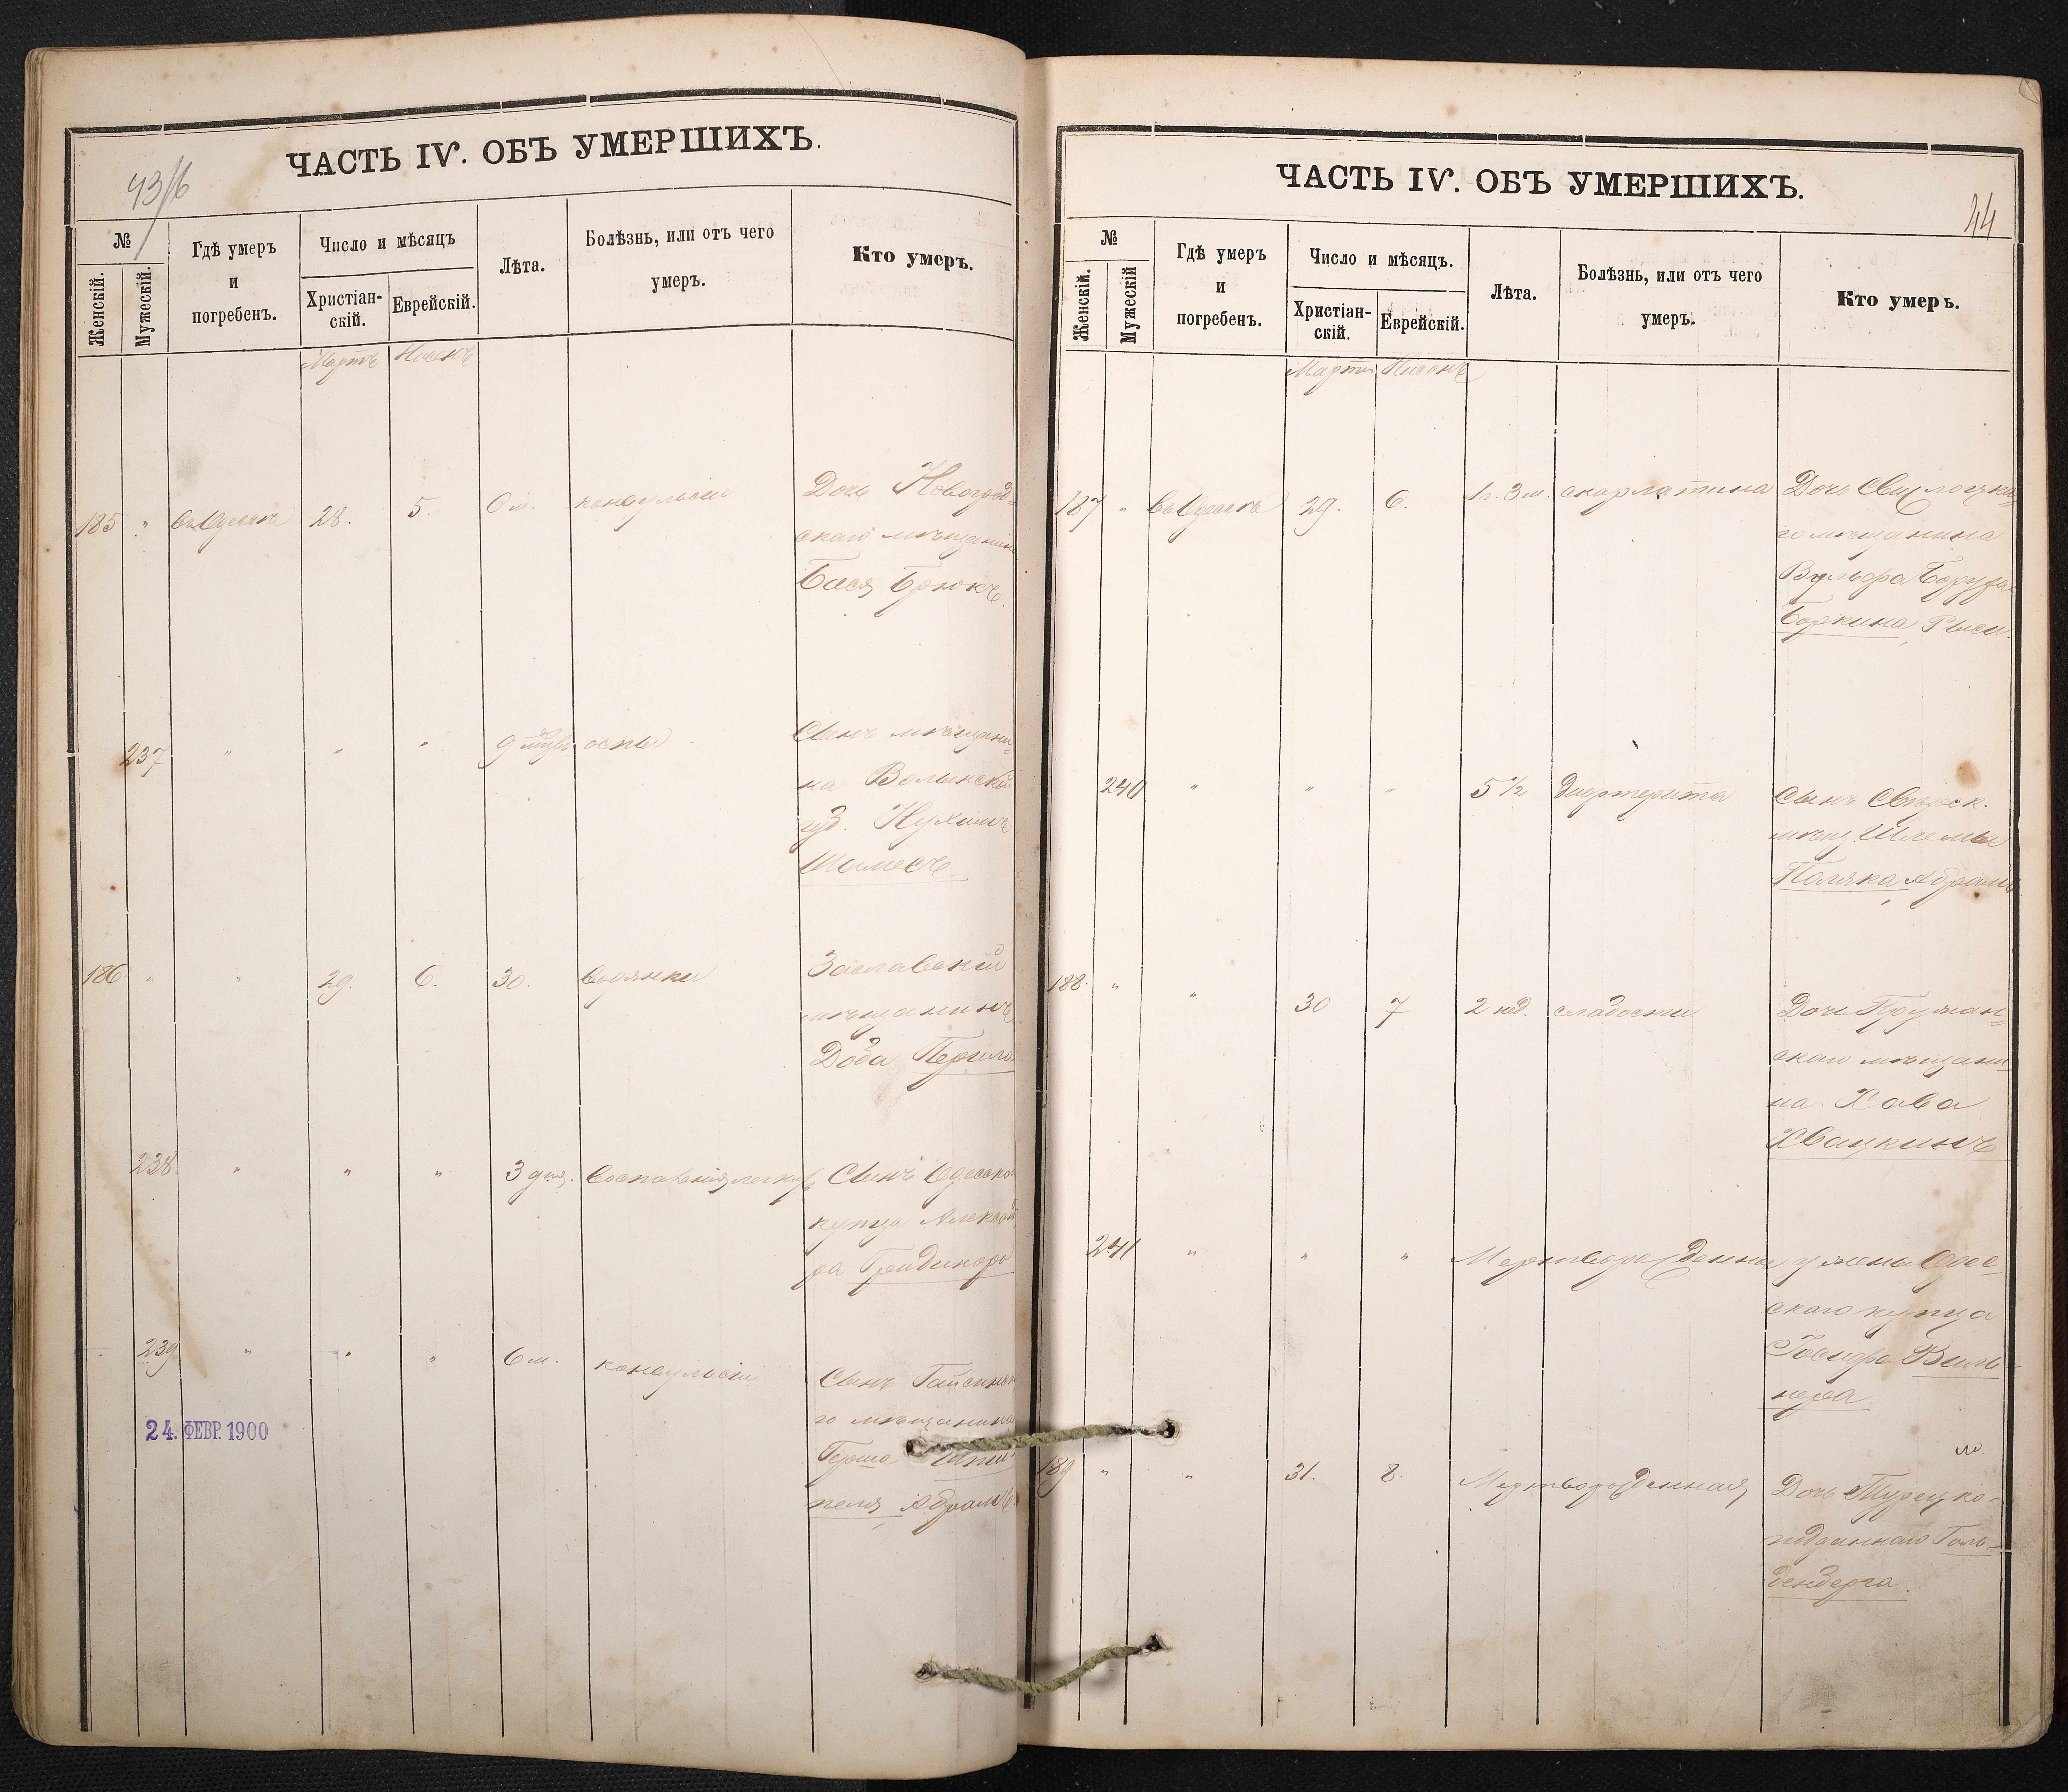 ЧАСТЬ IV. ОБЪ УМЕРШИХЪ.
43/6
№
Женскій.
Мужескій.
Гдѣ умеръ
и
погребенъ.
Число и мѣсяцъ
Христіан-
скій.
Еврейскій.
Лѣта.
Болѣзнь, или отъ чего
умеръ.
Кто умеръ.
Мартъ Нисанъ
185 " въ Одессѣ 28. 5. 6 м. конвульсіи Дочь Новоград=
скаго мѣщанина
Бася Брюкъ.
237 " " " 9 оспы Сынъ мѣщани=
на Волынской
губ. Нухимъ
186 " " 29. 6. 30. водянки Заславскій
мѣщанинъ
238. " " " 3 дня. Воспаленія легкихъ Сынъ Одесска
купца Алексан
ра
239 " " " 6 м. конвульсіи Сынъ Гайсинска
го мѣщанина
Герша
Абрамъ
24. ФЕВР. 1900
ЧАСТЬ IV. ОБЪ УМЕРШИХЪ.
44
№
Женскій.
Мужескій
Гдѣ умеръ
и
погребенъ.
Число и мѣсяцъ.
Христіан-
скій.
Еврейскій.
Лѣта.
Болѣзнь, или отъ чего
умеръ.
Кто умеръ.
Мартъ Нисанъ
187 " въ Одессѣ 29. 6. 1 г. 3 м. скарлатина Дочь Свислоцка=
го мѣщанина
Вульфа Боруха
Боркина,
240 " " " 5 1/2 Дифтерита Сынъ
мѣщ. Шлемы
Поляка, Абрамъ
188. " " 30 7 2 нед. слабости Дочь Пружан=
скаго мѣщани=
на Хава
Хвацкинъ
241 " " " Мертворожденный у жены Одес=
скаго купца
Іосифа Виль=
нера
189 " " 31. 8. Мертворожденная Дочь Турецко-
подданнаго Голь=
денберга.